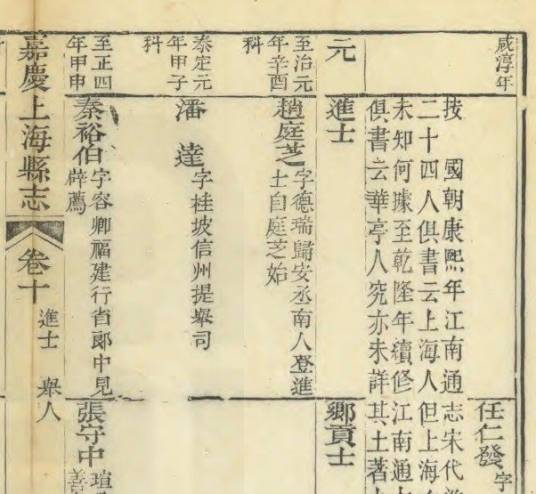 咸淳年
任仁發 字
按 國朝康熙年江南通志宋代
二十四人俱書云上海人但上海
未知何據至乾隆年續修江南通
俱書云華亭人究亦未詳其土著
元
進士
鄉貢士
至治元
年辛酉
科
趙庭芝 字德瑞歸安丞南人登進
士自庭芝始
泰定元
年甲子
科
潘逵 字桂坡信州提舉司
至正四
年甲申
秦裕伯 字容卿福建行省郎中見
辟薦
張守中 瑄
善
嘉慶上海縣志
卷十
進士 舉人